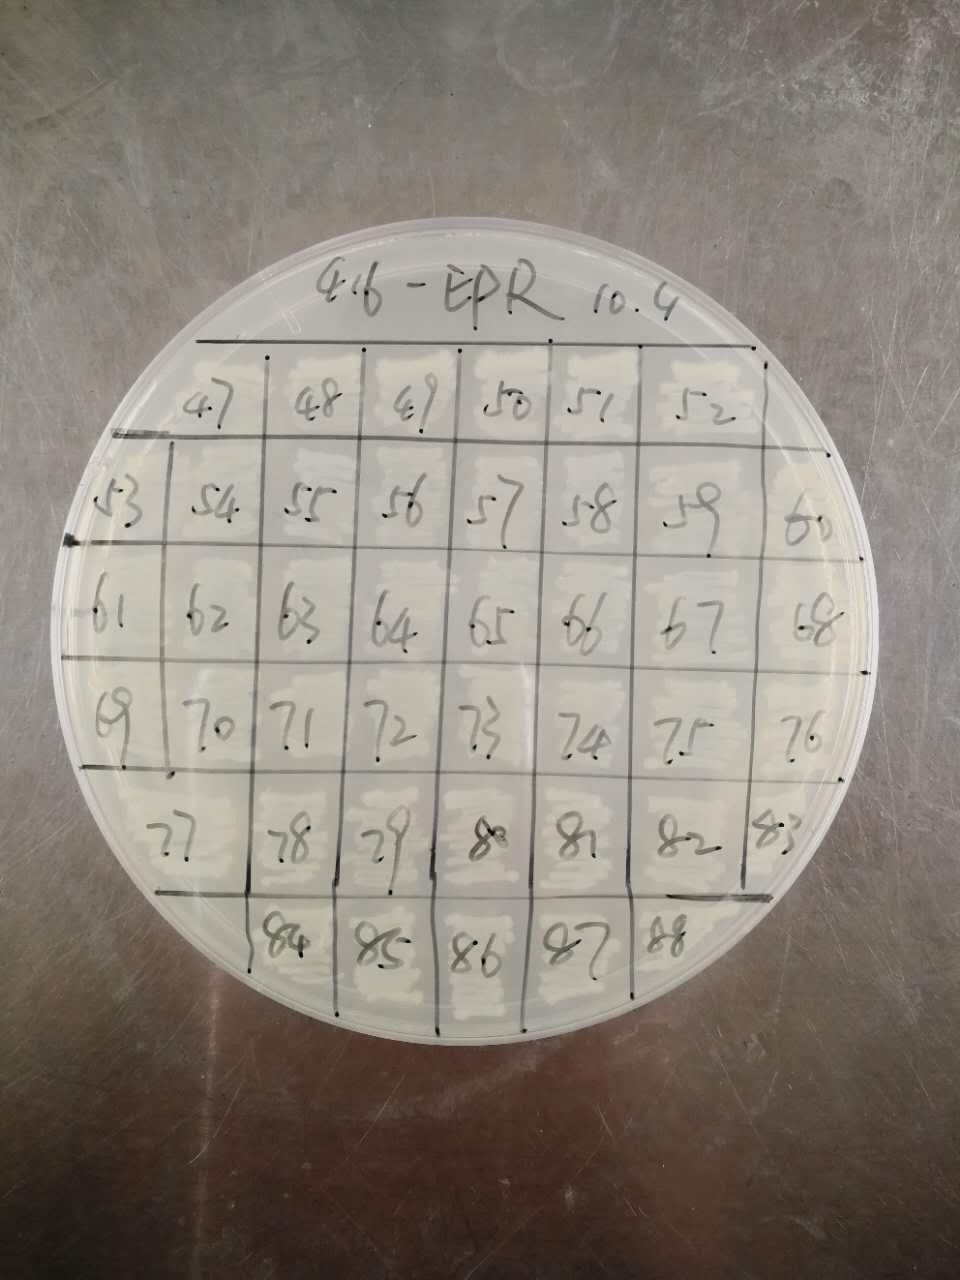 416-EPR 10.4
47 48 49 50 51 52
53 54 55 56 57 58 59 60
61 62 63 64 65 66 67 68
69 70 71 72 73 74 75 76
77 78 79 80 81 82 83
84 85 86 87 88